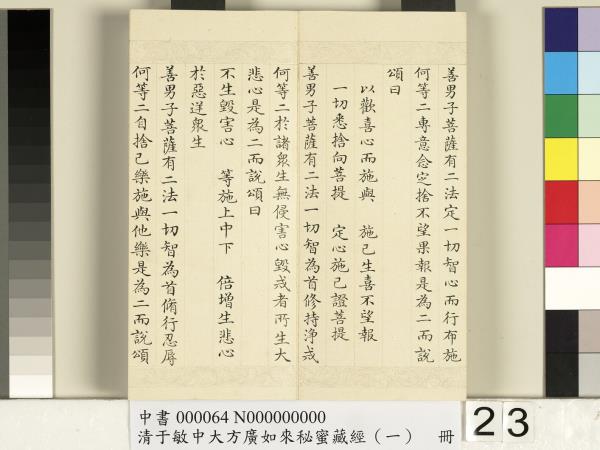 善男子菩薩有二法定一切智心而行布施
何等二專意念定捨不望果報是為二而說
頌曰
以歡喜心而施與　施已生喜不望報
一切悉捨向菩提　定心施已證菩提
善男子菩薩有二法一切智為首修持淨戒
何等二於諸眾生無侵害心毀戒者所生大
悲心是為二而說頌曰
不生毀害心　等施上中下　倍增生悲心
於惡逆眾生
善男子菩薩有二法一切智為首脩行忍辱
何等二自捨己樂施與他樂是為二而說頌
中書 000064 N000000000
清于敏中大方廣如來秘蜜藏經（一）　冊
23